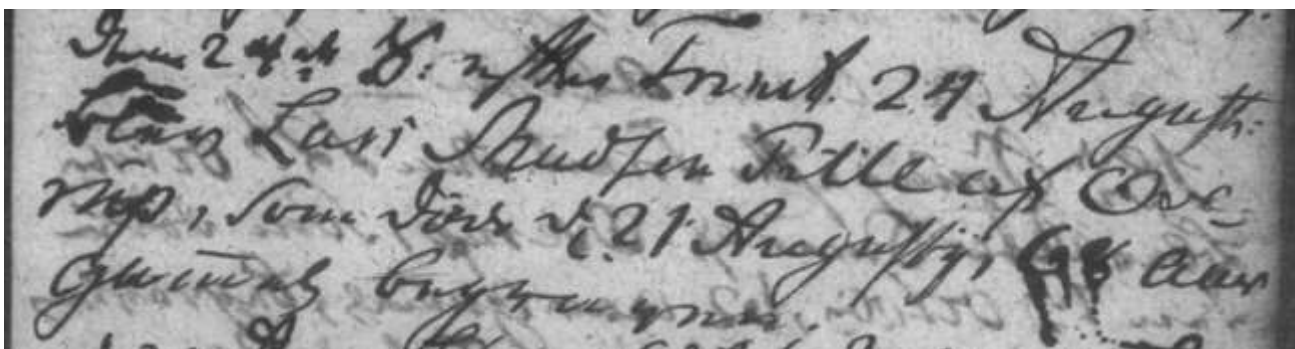 Dom 2 S: efter Trinit. 24 August:
blev Lars Knudsen Pille af Ove-
rup, som döde d. 21 Augustij, 68 aar
gammel begraven.